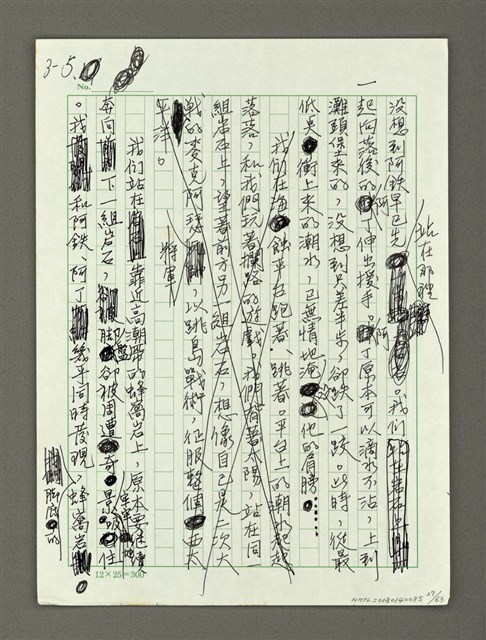 3-5.
No.
沒想到阿鉄早已先站在那裡。我們
一起向落後的阿丁伸出援手。阿丁原本可以滴水不沾,上到
灘頭堡來的,沒想到只差半步,卻跌了一跤。此時,從最
低臭衝上來的潮水,已無情地淹沒他的肩膀……
我們在海蝕平台跑著、跳著。平台上的潮水起起
落落,和我們玩著攔路的遊戲。我們背著太陽,站在同一
組岩石上,望著前方另一組岩石,想像自己是二次大
戰的麥克阿瑟將軍,以跳島戰術,征服整個西太
平洋。
我們站在靠近高潮間的蜂窩岩上,原本要
奔向下一組岩石,腳卻被周遭奇景吸住
。我和阿鉄、阿丁幾乎同時發現,蜂窩岩
腳底的
12×25=300
NMTL20180140085 27/63